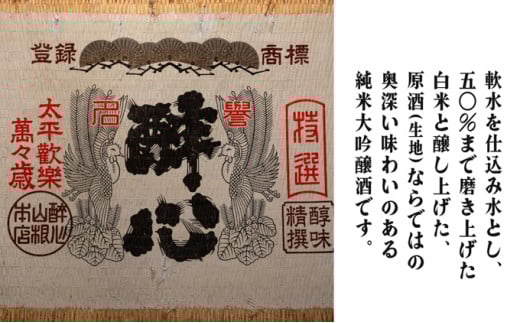 登録
商標
名
譽
酔心
特選
醇味
精撰
太平歡樂
萬々歳
醉心
山根
本宮
軟水を仕込み水とし、
五〇％まで磨き上げた
白米と醸し上げた、
原酒(生地)ならではの
奥深い味わいのある
純米大吟醸酒です。